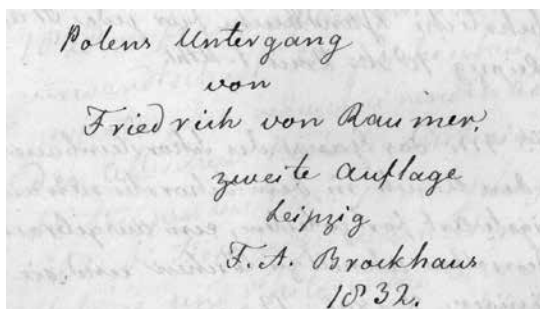 Polens Untergang
von
Friedrich von Raumer.
zweite Auflage
Leipzig
F. A. Brockhaus
1832.